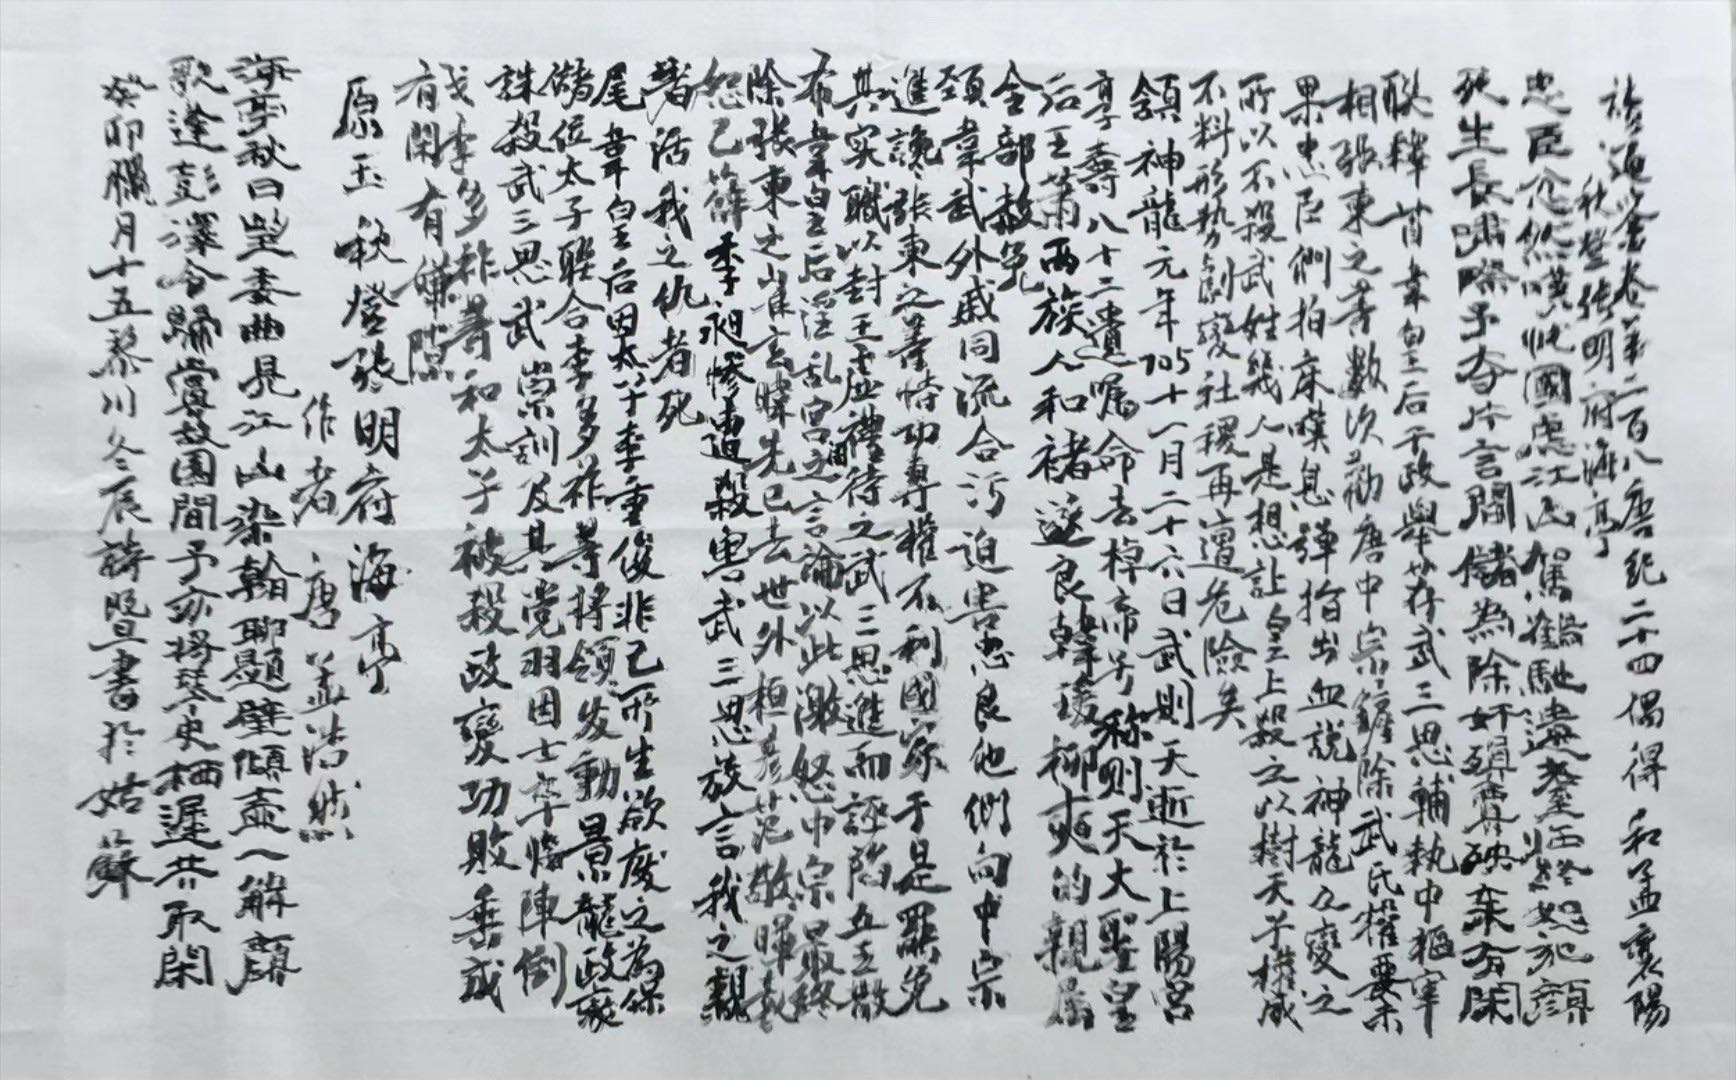 讀通鑒卷第二百八唐紀二十四偶得 和孟襄陽
秋登張明府海亭
忠臣忿然嘆忧國慮江山駕鶴馳遺臺西終恕犯顏
死生長嘯際予奪片言間儲為除奸殞弄秧柬有閑
註釋 首韋皇后干政舉荐武三思輔執中樞宰
相張柬之等數次勸唐中宗鏟除武氏權要未
果忠臣們拍床嘆息彈指出血說神龍之變之
所以不殺武姓幾人是想讓皇上殺之以樹天子權威
不料形勢劇變社稷再遭危險矣
頷神龍元年705十一月二十六日武則天逝於上陽宮
享壽八十二遺囑命去掉帝号称則天大聖皇
后王蕭两族人和褚遂良韓瑗柳奭的親屬
全部赦免
頸韋武外戚同流合污迫害忠良他們向中宗
進讒張柬之等恃功專權不利國家于是罷免
其实職以封王虛禮待之武三思進而誣陷五王散
布韋皇后淫乱宮闈之言論以此激怒中宗最終
除張柬之崔玄暐先已去世外桓彥范敬暉袁
恕己薛季昶慘遭殺害武三思放言我之親
者活我之仇者死
尾韋皇后因太子李重俊非己所生欲废之為保
儲位太子聯合李多祚等将領发動景龍政变
誅殺武三思武崇訓及其党羽因士卒临陣倒
戈李多祚等和太子被殺政变功敗垂成
有閑有罅隙
原玉 秋登張明府海亭
作者 唐 孟浩然
海亭秋日望委曲見江山染翰聊題壁傾壺一解顏
歌逢彭澤令歸賞故園間予亦将琴史栖遲共取閑
癸卯臘月十五黎川冬辰詩暨書於姑蘇